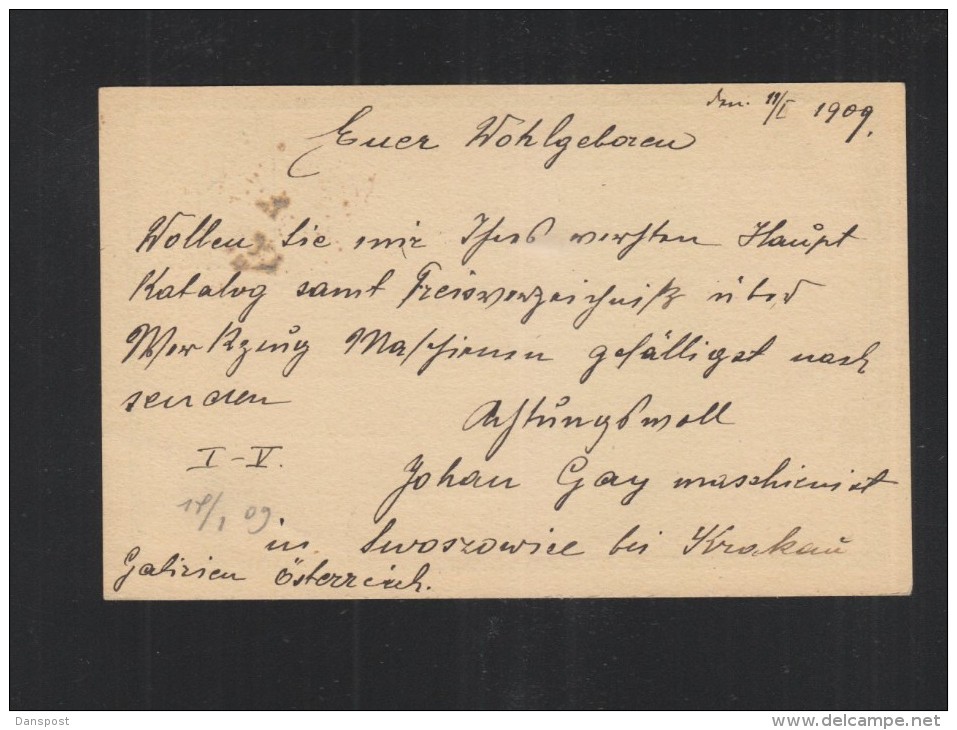 den. 11/I 1909.
Euer Wohlgeboren
Wollen Sie mir Ihres wersten Haupt
Katalog samt Preisverzeichniß über
Werkzeug Maschienen gefälligst nach
senden
Achtungsvoll
I-V.
Johan Gay maschienist
18/1 09
in Swoszowice bei Krakau
Galizien Österreich.
Danspost
www.delcampe.net